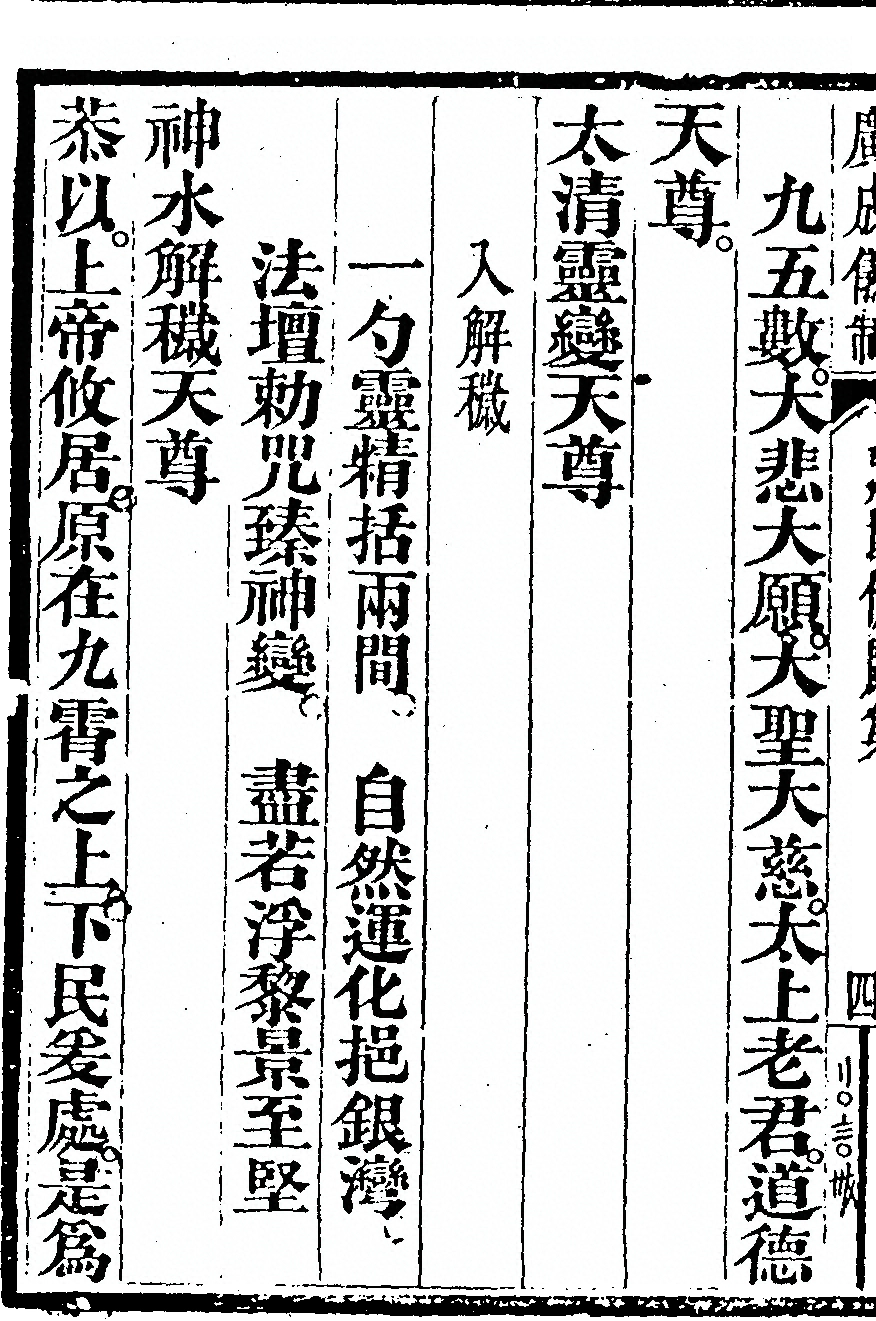 廣成儀制
四
九五數。大悲大願。大聖大慈。太上老君。道德
天尊。
太清靈變天尊
入解穢
一勺靈精括兩間。 自然運化挹銀灣、
法壇勅咒臻神變。 盡若浮黎景至堅
神水解穢天尊
恭以。上帝攸居。原在九霄之上。下民爰處。是爲